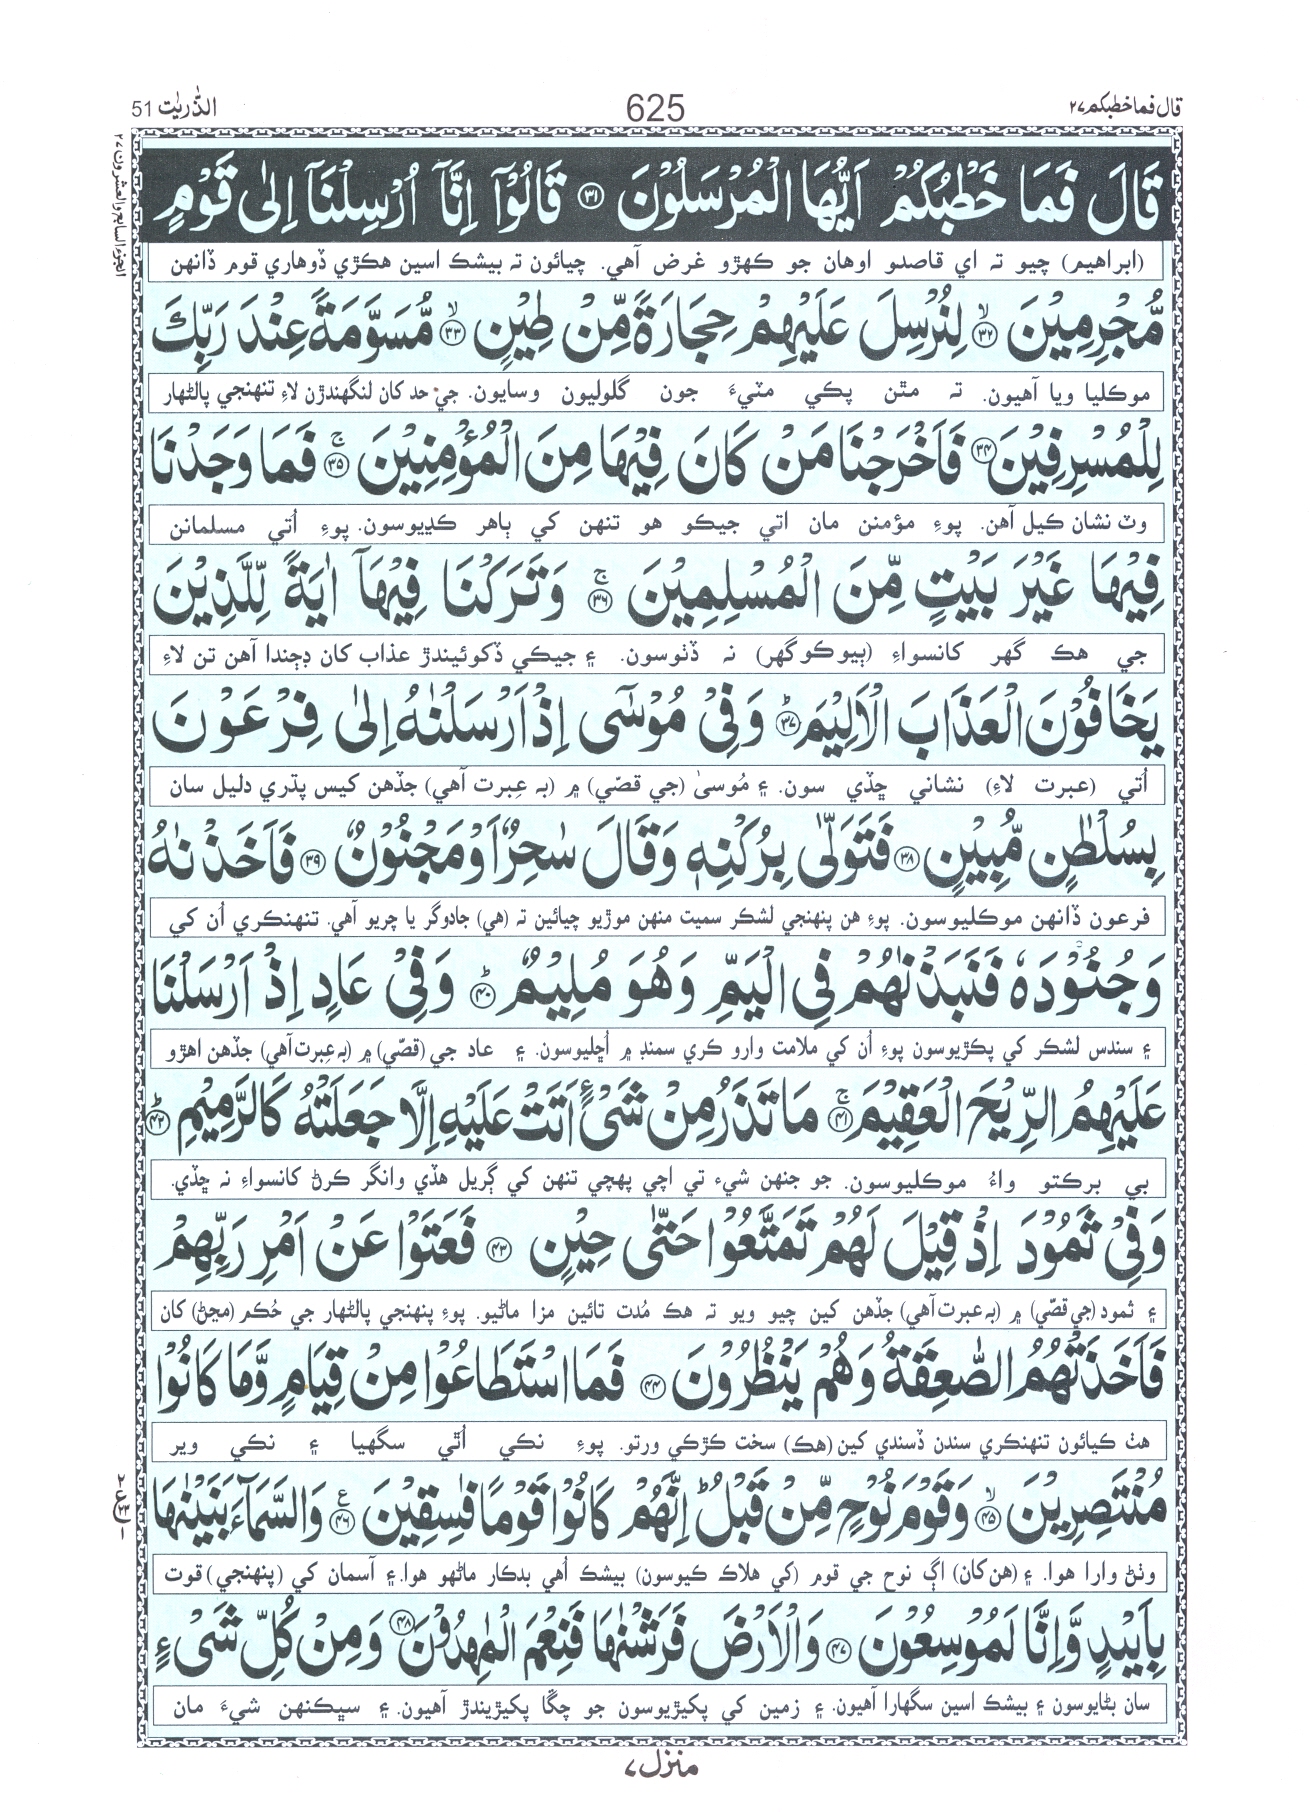 قال فماخطبكم ٢٧ 625 الذّريٰت 51
الجزء السابع والعشرون ٢٧
قَالَ فَمَا خَطْبُكُمْ اَيُّهَا الْمُرْسَلُوْنَ ۝٣١ قَالُوْٓا اِنَّآ اُرْسِلْنَآ اِلٰى قَوْمٍ
(ابراهيم) چيو ته اي قاصدو اوهان جو ڪهڙو غرض آهي. چيائون ته بيشڪ اسين هڪڙي ڏوهاري قوم ڏانهن
مُّجْرِمِيْنَ ۝٣٢ۙ لِنُرْسِلَ عَلَيْهِمْ حِجَارَةً مِّنْ طِيْنٍ ۝٣٣ۙ مُّسَوَّمَةً عِنْدَ رَبِّكَ
موڪليا ويا آهيون. ته مٿن پڪي مٽيءَ جون گلوليون وسايون. جي حد کان لنگهندڙن لاءِ تنهنجي پالڻهار
لِلْمُسْرِفِيْنَ ۝٣٤ فَاَخْرَجْنَا مَنْ كَانَ فِيْهَا مِنَ الْمُؤْمِنِيْنَ ۝٣٥ۚ فَمَا وَجَدْنَا
وٽ نشان ڪيل آهن. پوءِ مؤمنن مان اتي جيڪو هو تنهن کي ٻاهر ڪڍيوسون. پوءِ اُتي مسلمانن
فِيْهَا غَيْرَ بَيْتٍ مِّنَ الْمُسْلِمِيْنَ ۝٣٦ۚ وَتَرَكْنَا فِيْهَآ اٰيَةً لِّلَّذِيْنَ
جي هڪ گهر کانسواءِ (ٻيو ڪو گهر) نه ڏٺوسون. ۽ جيڪي ڏکوئيندڙ عذاب کان ڊڄندا آهن تن لاءِ
يَخَافُوْنَ الْعَذَابَ الْاَلِيْمَ ۝٣٧ؕ وَفِيْ مُوْسٰٓى اِذْ اَرْسَلْنٰهُ اِلٰى فِرْعَوْنَ
اُتي (عبرت لاءِ) نشاني ڇڏي سون. ۽ مُوسىٰ (جي قصّي) ۾ (به عِبرت آهي) جڏهن کيس پڌري دليل سان
بِسُلْطٰنٍ مُّبِيْنٍ ۝٣٨ فَتَوَلّٰى بِرُكْنِهٖ وَقَالَ سٰحِرٌ اَوْ مَجْنُوْنٌ ۝٣٩ فَاَخَذْنٰهُ
فرعون ڏانهن موڪليوسون. پوءِ هن پنهنجي لشڪر سميت منهن موڙيو چيائين ته (هي) جادوگر يا چريو آهي. تنهنڪري اُن کي
وَجُنُوْدَهٗ فَنَبَذْنٰهُمْ فِي الْيَمِّ وَهُوَ مُلِيْمٌ ۝٤٠ؕ وَفِيْ عَادٍ اِذْ اَرْسَلْنَا
۽ سندس لشڪر کي پڪڙيوسون پوءِ اُن کي ملامت وارو ڪري سمنڊ ۾ اُڇليوسون. ۽ عاد جي (قصّي) ۾ (به عِبرت آهي) جڏهن اهڙو
عَلَيْهِمُ الرِّيْحَ الْعَقِيْمَ ۝٤١ۚ مَا تَذَرُ مِنْ شَيْءٍ اَتَتْ عَلَيْهِ اِلَّا جَعَلَتْهُ كَالرَّمِيْمِ ۝٤٢ؕ
بي برڪتو واءُ موڪليوسون. جو جنهن شيء تي اچي پهچي تنهن کي ڳريل هڏي وانگر ڪرڻ کانسواءِ نه ڇڏي.
وَفِيْ ثَمُوْدَ اِذْ قِيْلَ لَهُمْ تَمَتَّعُوْا حَتّٰى حِيْنٍ ۝٤٣ فَعَتَوْا عَنْ اَمْرِ رَبِّهِمْ
۽ ثمود (جي قصّي) ۾ (به عبرت آهي) جڏهن کين چيو ويو ته هڪ مُدت تائين مزا ماڻيو. پوءِ پنهنجي پالڻهار جي حُڪم (مڃڻ) کان
فَاَخَذَتْهُمُ الصّٰعِقَةُ وَهُمْ يَنْظُرُوْنَ ۝٤٤ فَمَا اسْتَطَاعُوْا مِنْ قِيَامٍ وَّمَا كَانُوْا
هٺ ڪيائون تنهنڪري سندن ڏسندي کين (هڪ) سخت ڪڙڪي ورتو. پوءِ نڪي اُٿي سگهيا ۽ نڪي وير
مُنْتَصِرِيْنَ ۝٤٥ۙ وَقَوْمَ نُوْحٍ مِّنْ قَبْلُ ؕ اِنَّهُمْ كَانُوْا قَوْمًا فٰسِقِيْنَ ۝٤٦ع وَالسَّمَآءَ بَنَيْنٰهَا
وٺڻ وارا هوا. ۽ (هن کان) اڳ نوح جي قوم (کي هلاڪ ڪيوسون) بيشڪ اُهي بدڪار ماڻهو هوا. ۽ آسمان کي (پنهنجي) قوت
بِاَيْىدٍ وَّاِنَّا لَمُوْسِعُوْنَ ۝٤٧ وَالْاَرْضَ فَرَشْنٰهَا فَنِعْمَ الْمٰهِدُوْنَ ۝٤٨ وَمِنْ كُلِّ شَيْءٍ
سان بڻايوسون ۽ بيشڪ اسين سگهارا آهيون. ۽ زمين کي پکيڙيوسون جو چڱا پکيڙيندڙ آهيون. ۽ سڀڪنهن شيءَ مان
منزل ٧